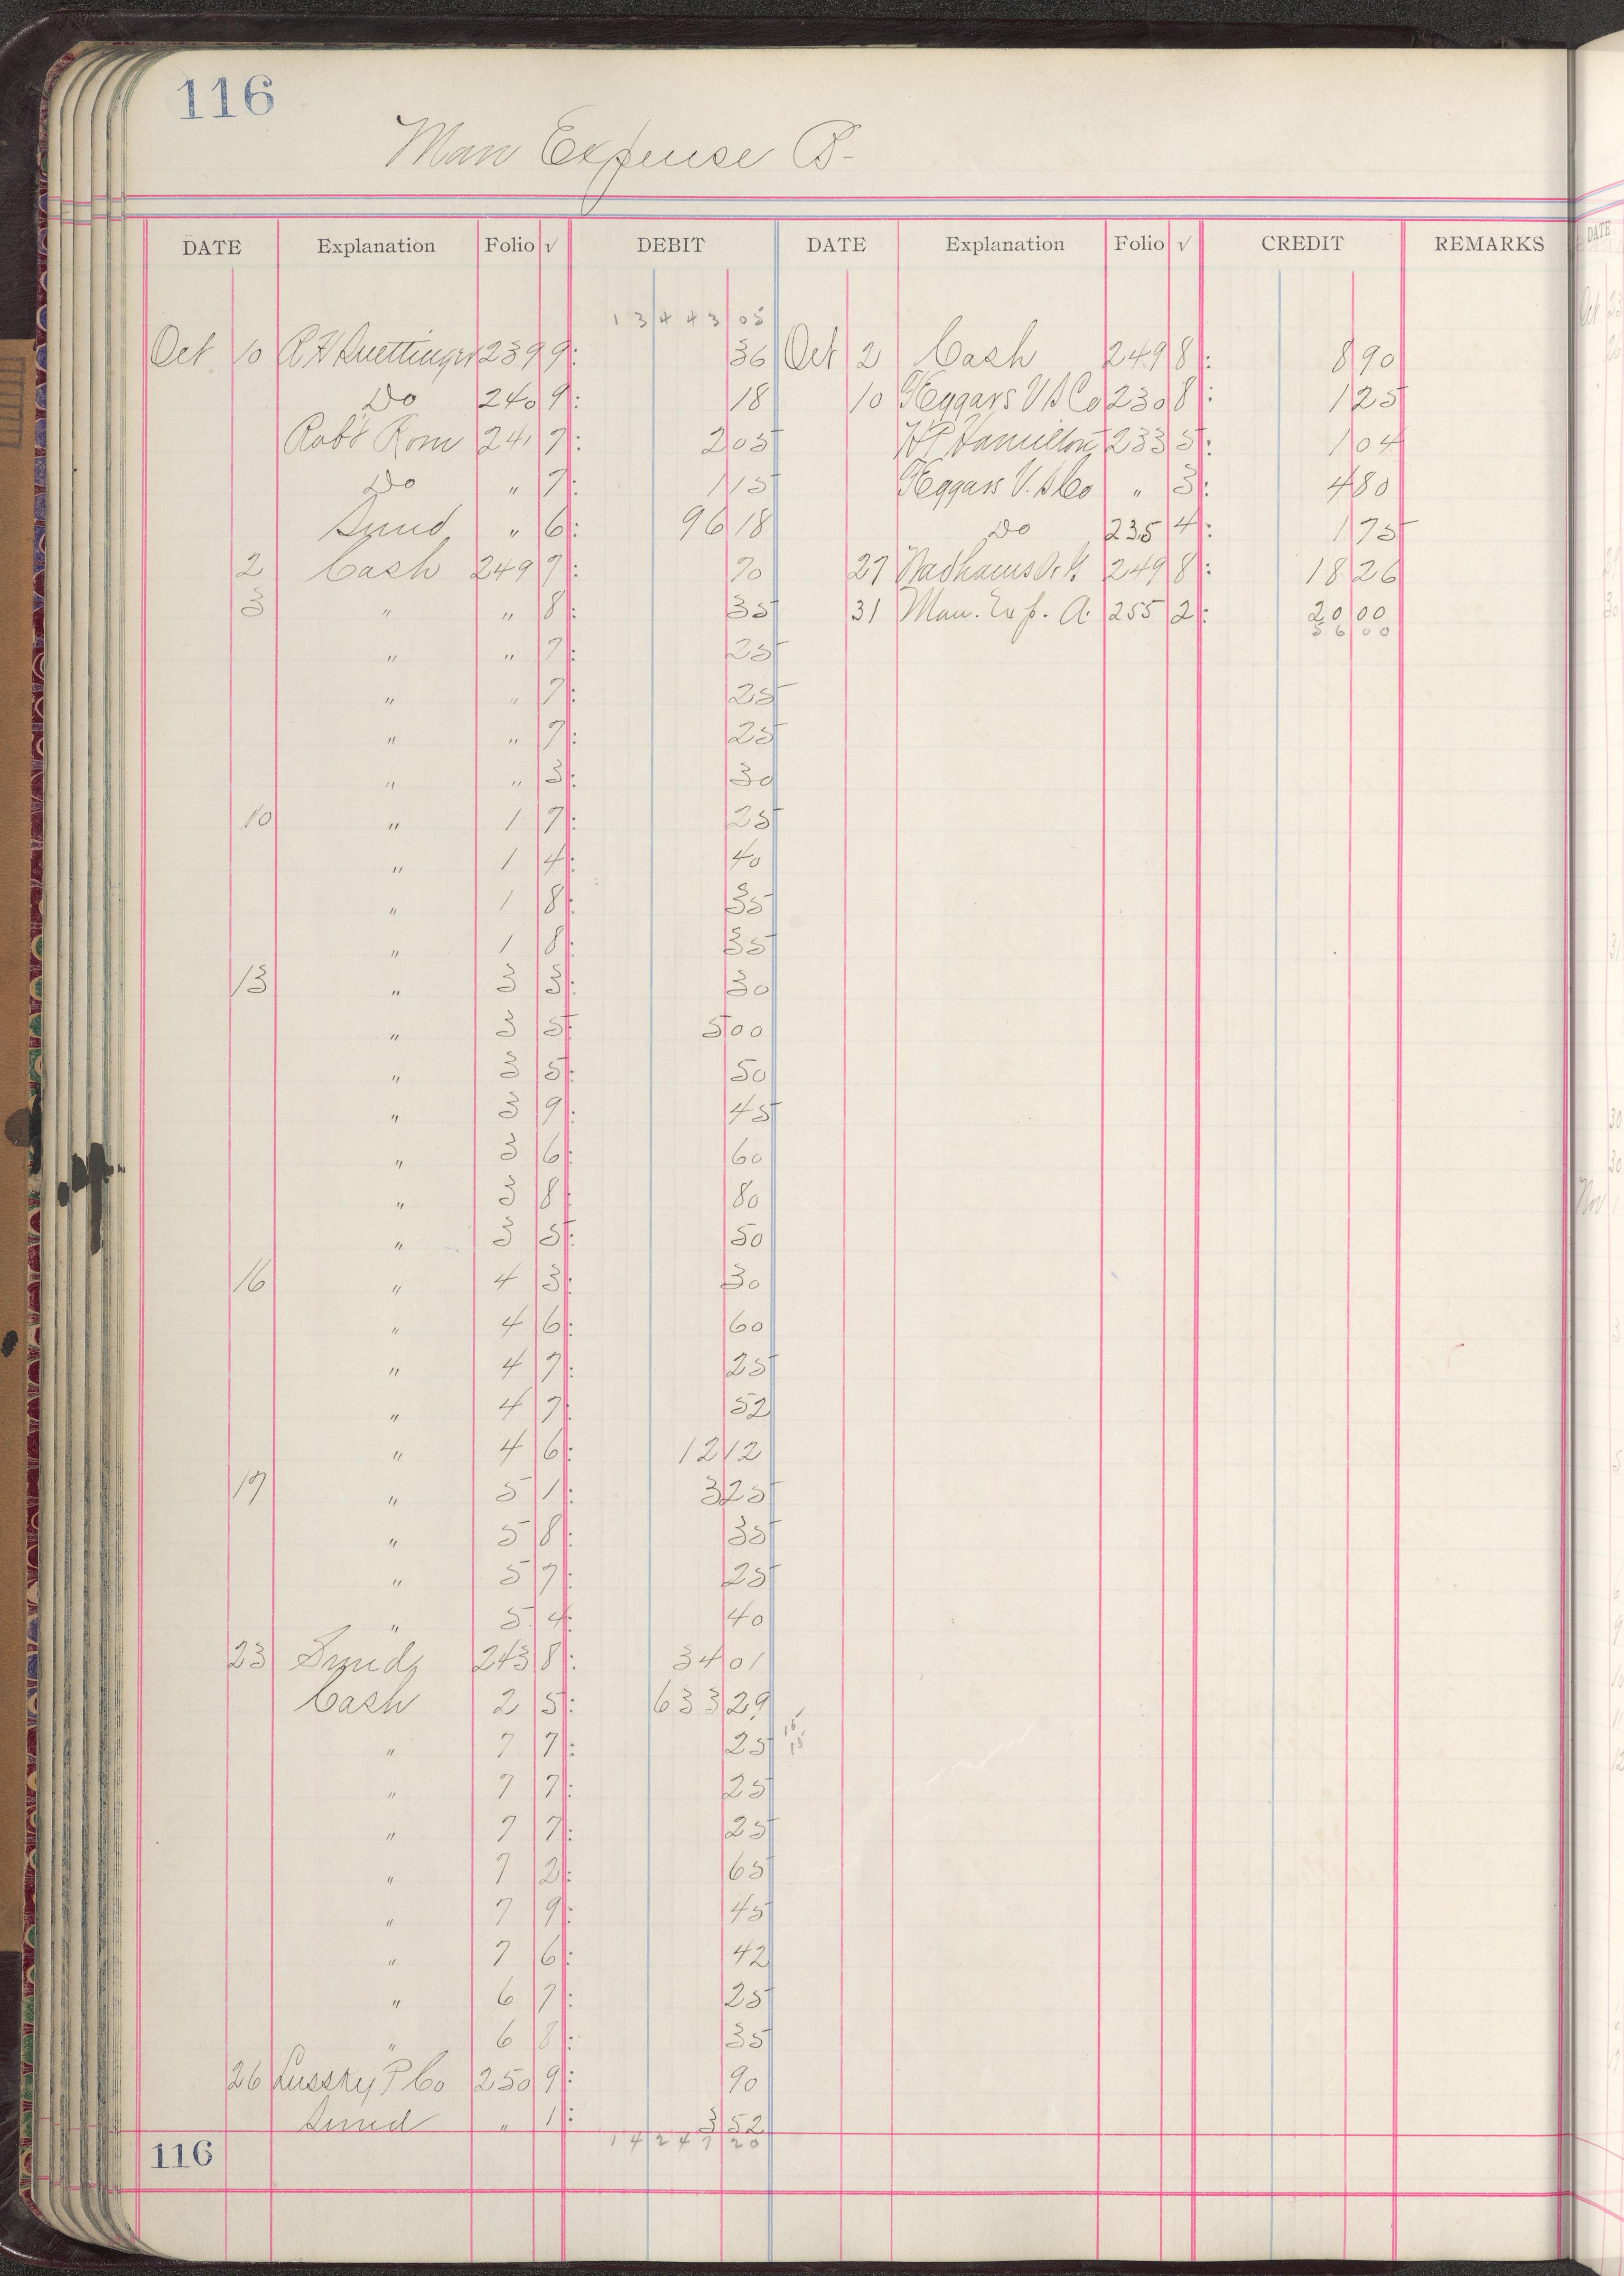 116
Man Expense B-
DATE Explanation Folio √ DEBIT DATE Explanation Folio √ CREDIT REMARKS
13443 05
Oct 10 239 9: 36 Oct 2 Cash 249 8: 8 90
Do 240 9: 18 10 Heggars V S Co 230 8: 1 25
Robt Rom 241 7: 2 05 H P Hamilton 233 5: 1 04
Do " 7: 1 15 Heggars V. S Co " 3: 4 80
Sund " 6: 96 18 Do 235 4: 1 75
2 Cash 249 7: 70 27 Wadhams 249 8: 18 26
3 " " 8: 35 31 Man. Exp. A. 255 2: 20 00
56 00
" " 7: 25
" " 7: 25
" " 7: 25
" " 3: 30
10 " 1 7: 25
" 1 4: 40
" 1 8: 35
" 1 8: 35
13 " 3 3: 30
" 3 5: 5 00
" 3 5: 50
" 3 9: 45
" 3 6: 60
" 3 8: 80
" 3 5: 50
16 " 4 3: 30
" 4 6: 60
" 4 7: 25
" 4 7: 52
" 4 6: 12 12
17 " 5 1: 3 25
" 5 8: 35
" 5 7: 25
" 5 4: 40
23 Sunds 243 8: 34 01
Cash 2 5: 633 29
" 7 7: 25
" 7 7: 25
" 7 7: 25
" 7 2: 65
" 7 9: 45
" 7 6: 42
" 6 7: 25
" 6 8: 35
26 Lussky P Co 250 9: 90
Sund " 1: 3 52
14247 20
116